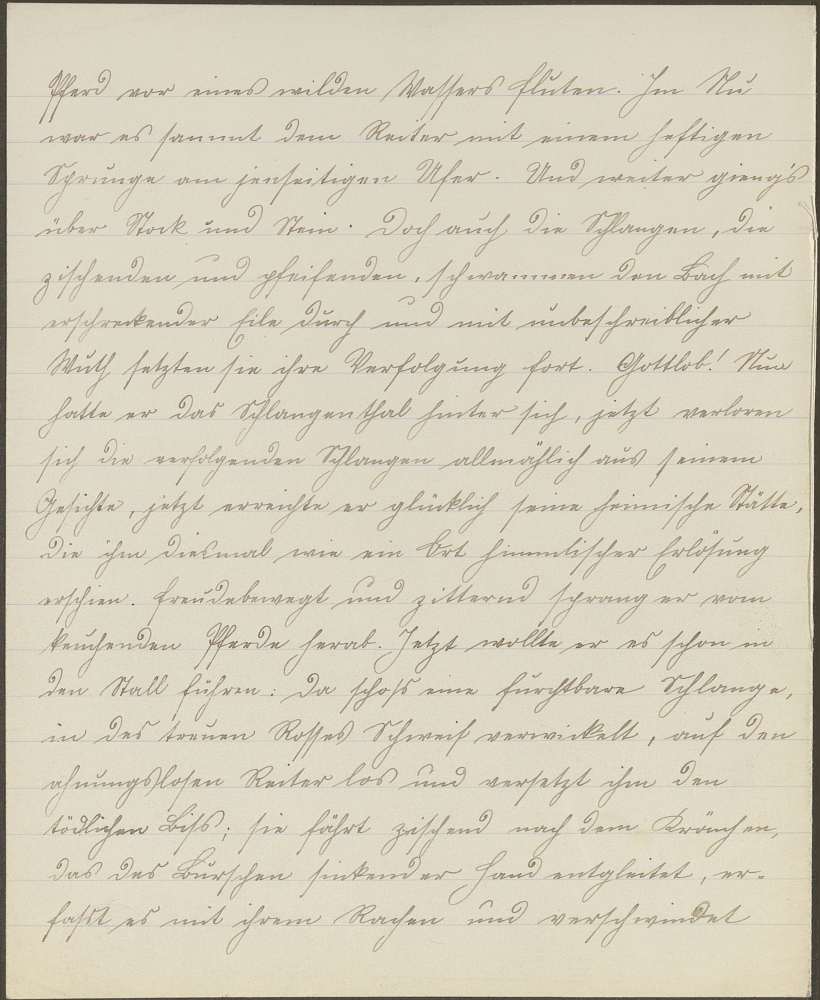 Pferd vor eines wilden Wassers Fluten. Im Nu
war es sammt dem Reiter mit einem heftigen
Sprunge am jenseitigen Ufer. Und weiter gieng's
über Stock und Stein. Doch auch die Schlangen, die
zischenden und pfeifenden, schwammen den Bach mit
erschreckender Eile durch und mit unbeschreiblicher
Wuth setzten sie ihre Verfolgung fort. Gottlob! Nun
hatte er das Schlangenthal hinter sich, jetzt verloren
sich die verfolgenden Schlangen allmählich aus seinem
Gesichte, jetzt erreichte er glücklich seine heimische Stätte,
die ihm diesmal wie ein Ort himmlischer Erlösung
erschien. Freudebewegt und zitternd sprang er vom
keuchenden Pferde herab. Jetzt wollte er es schon in
den Stall führen: da schoss eine furchtbare Schlange,
in des treuen Rosses Schweif verwickelt, auf den
ahnungslosen Reiter los und versetzt ihm den
tödlichen Biss; sie fährt zischend nach dem Krönchen,
das des Burschen sinkender Hand entgleitet, er-
fasst es mit ihrem Rachen und verschwindet